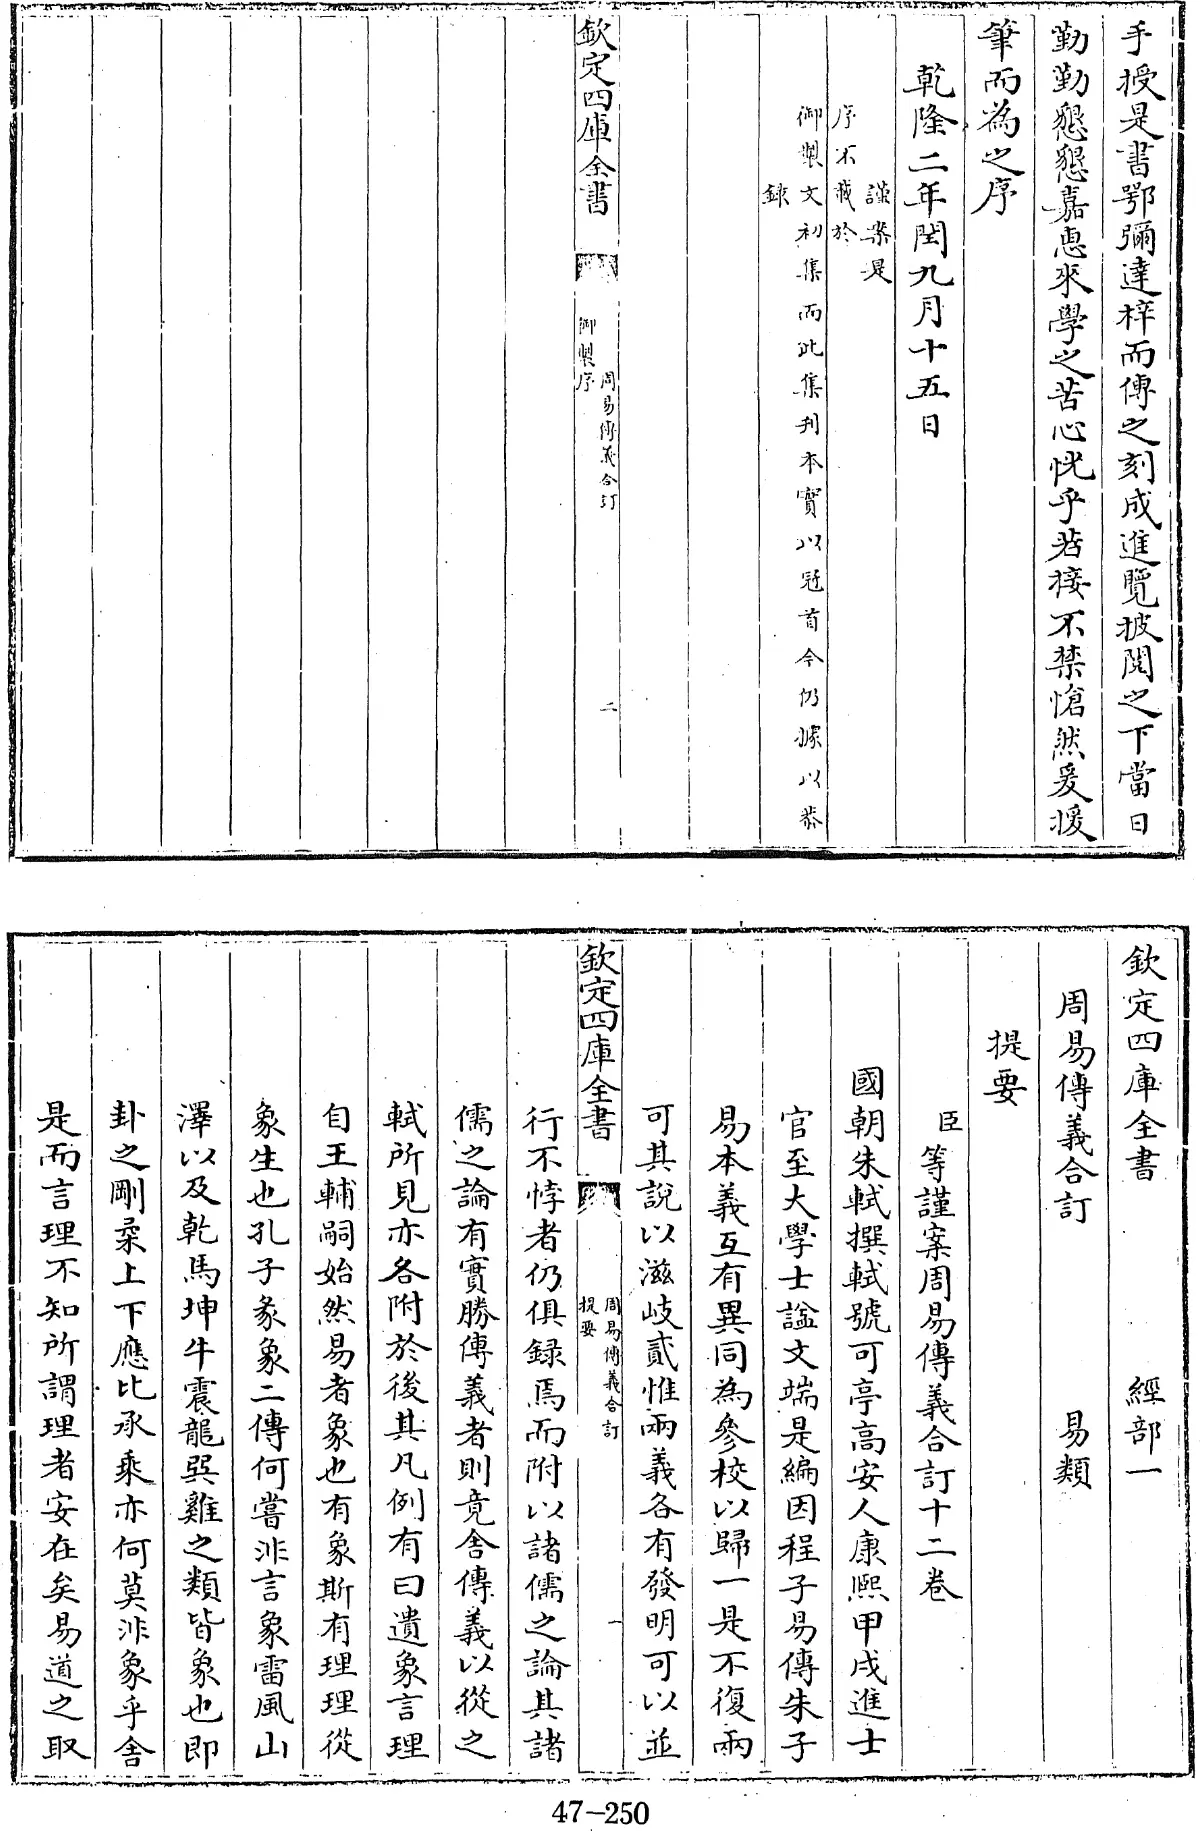 手授是書鄂彌達梓而傳之刻成進覽披閱之下當日
勤勤懇懇嘉惠來學之苦心恍乎若接不禁愴然爰援
筆而為之序
乾隆二年閏九月十五日
謹案是
序不載於
御製文初集而此集刊本實以冠首今仍據以恭
錄
欽定四庫全書
周易傳義合訂
御製序
二
欽定四庫全書 經部一
周易傳義合訂 易類
提要
臣等謹案周易傳義合訂十二卷
國朝朱軾撰軾號可亭高安人康熙甲戌進士
官至大學士諡文端是編因程子易傳朱子
易本義互有異同為參校以歸一是不復兩
可其說以滋岐貳惟兩義各有發明可以並
欽定四庫全書
周易傳義合訂
提要
一
行不悖者仍俱録焉而附以諸儒之論其諸
儒之論有實勝傳義者則竟舍傳義以從之
軾所見亦各附於後其凡例有曰遺象言理
自王輔嗣始然易者象也有象斯有理理從
象生也孔子彖象二傳何嘗非言象雷風山
澤以及乾馬坤牛震龍巽雞之類皆象也即
卦之剛柔上下應比承乘亦何莫非象乎舍
是而言理不知所謂理者安在矣易道之取
47-250